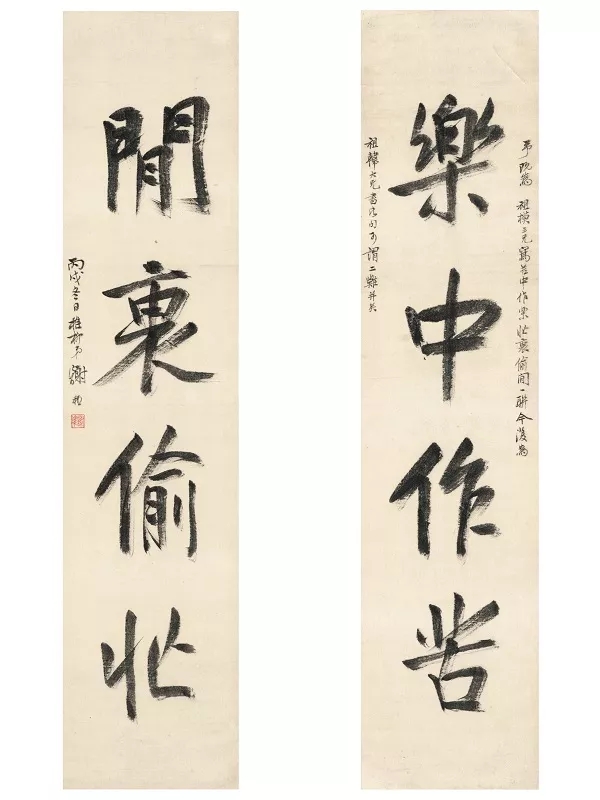 弟既為 祖模三兄寫苦中作樂 忙裏偷閒一聯今復為
樂中作苦
祖韓大兄書 句可謂二難并矣
閒裏偷忙
丙戌冬日稚柳弟謝稚